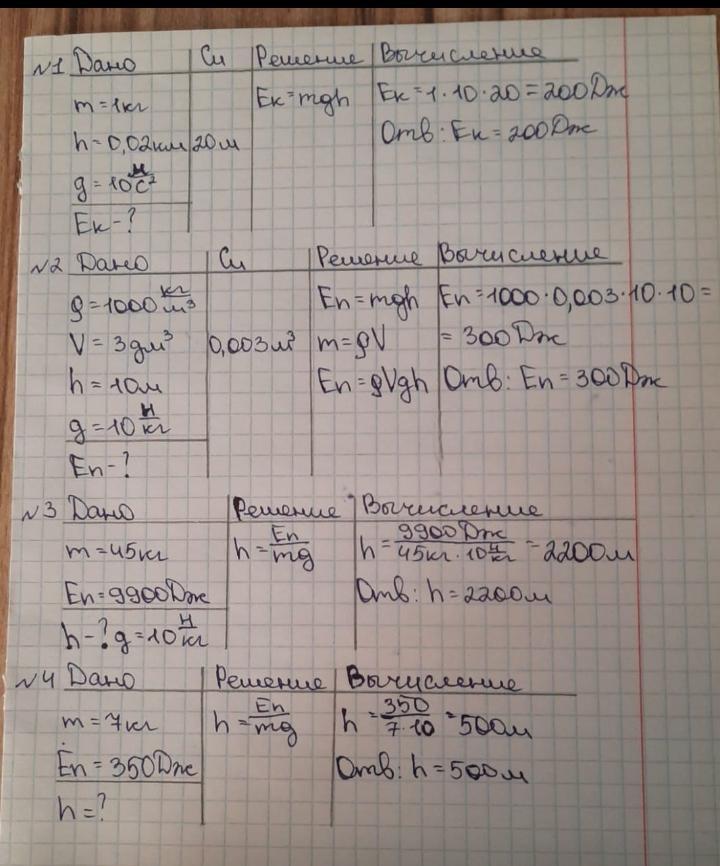 №1 Дано Си Решение Вычисление
m=1кг Eк=mgh Eк=1·10·20=200Дж
h=0,02км 20м Отв: Eк=200Дж
g=10 м/с²
Eк-?
№2 Дано Си Решение Вычисление
ρ=1000 кг/м³ Eп=mgh Eп=1000·0,003·10·10=
V=3дм³ 0,003м³ m=ρV =300Дж
h=10м Eп=ρVgh Отв: Eп=300Дж
g=10 Н/кг
Eп-?
№3 Дано Решение Вычисление
m=45кг h=Eп/mg h=9900Дж/45кг·10Н/кг=2200м
Eп=9900Дж Отв: h=2200м
h-? g=10 Н/кг
№4 Дано Решение Вычисление
m=7кг h=Eп/mg h=350/7·10=500м
Eп=350Дж Отв: h=500м
h=?